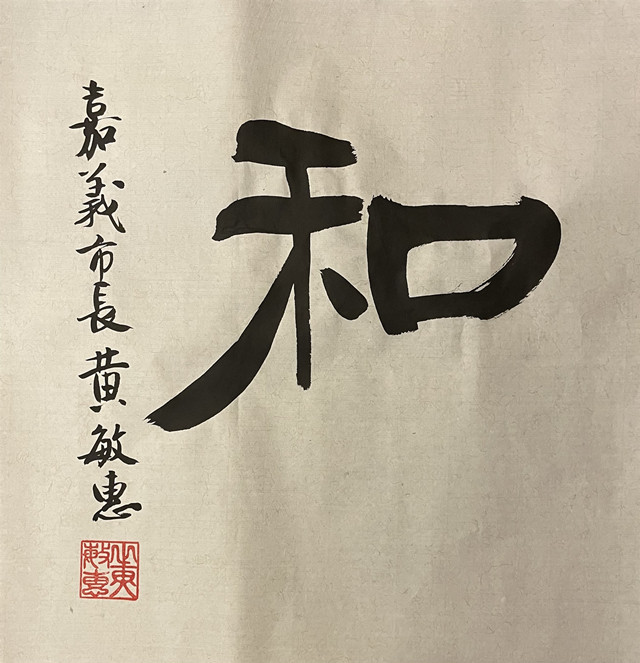 和
嘉義市長黃敏惠
黃敏惠